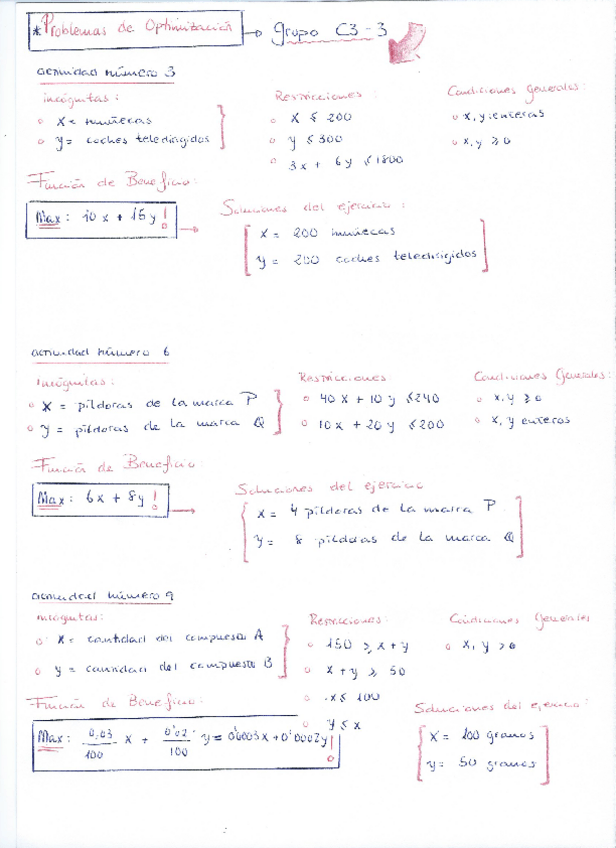 * Problemas de Optimización → grupo C3-3
actividad número 3
incógnitas:
o x = muñecas
o y = coches teledirigidos
Restricciones:
o x ≤ 200
o y ≤ 300
o 3x + 6y ≤ 1800
Condiciones generales:
o x, y enteras
o x, y ≥ 0
Función de Beneficio:
Max: 10x + 15y !
Soluciones del ejercicio:
x = 200 muñecas
y = 200 coches teledirigidos
actividad número 6
Incógnitas:
o x = píldoras de la marca P
o y = píldoras de la marca Q
Restricciones
o 40x + 10y ≤ 240
o 10x + 20y ≤ 200
Condiciones Generales:
o x, y ≥ 0
o x, y enteros
Función de Beneficio:
Max: 6x + 8y !
Soluciones del ejercicio
x = 4 píldoras de la marca P
y = 8 píldoras de la marca Q
actividad número 9
incógnitas:
o x = cantidad del compuesto A
o y = cantidad del compuesto B
Restricciones:
o 150 ≥ x + y
o x + y ≥ 50
o x ≤ 100
o y ≤ x
Condiciones Generales
o x, y > 0
Función de Beneficio:
Max: 0,03/100 x + 0'02/100 y = 0'0003x + 0'0002y !
Soluciones del ejercicio:
x = 100 gramos
y = 50 gramos